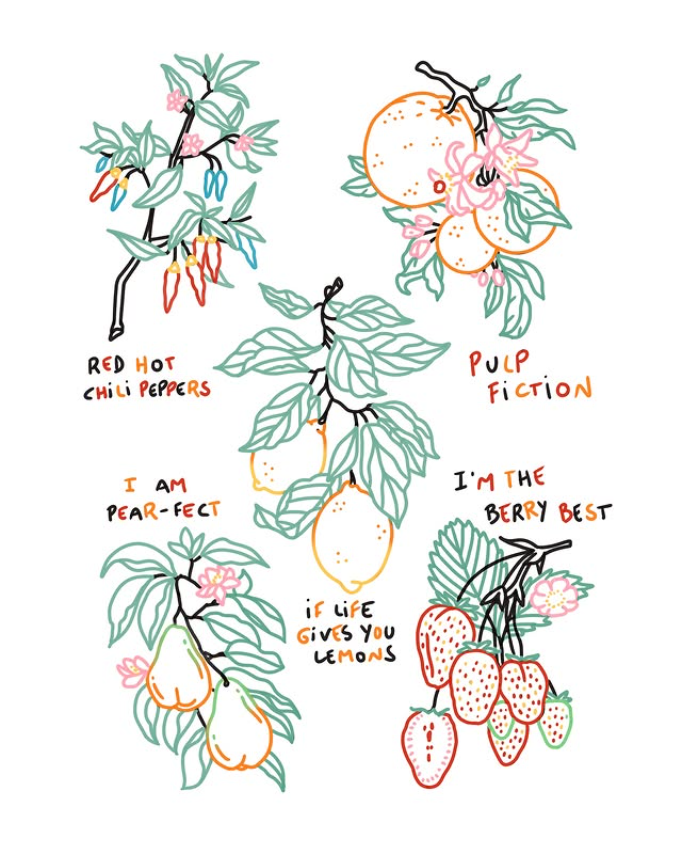 RED HOT
CHiLi PEPPERS
PULP
FiCTiON
I AM
PEAR-FECT
I'M THE
BERRY BEST
iF LiFE
GiVES YOU
LEMONS